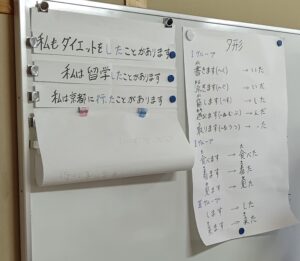 私もダイエットをしたことがあります
私は留学したことがあります
私は京都に行ったことがあります
タ形
Iグループ
書きます(〜く) → いた
貸します(〜す) → した
取ります(〜る・う・つ) → った
IIグループ
食べます → 食べた
着ます → 着た
見ます → 見た
IIIグループ
します → した
来ます → 来た